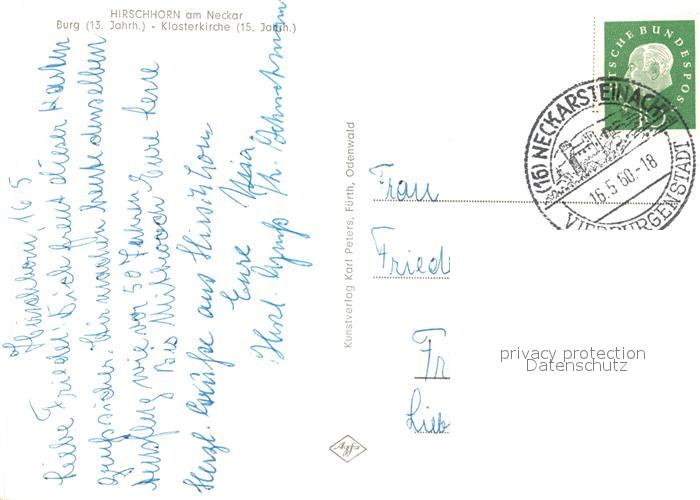 HIRSCHHORN am Neckar
Burg (13. Jahrh.) - Klosterkirche (15. Jahrh.)
Hirschhorn, 16.5
Liebe Friedel. Dich freut dieser Karten
gruß sicher. Wir machen heute denselben
Ausflug wie vor 50 Jahren.
Bis Mittwoch Eure
Herzl. Grüße aus Hirschhorn
Eure
Herzl. Gruß
Kunstverlag Karl Peters, Fürth, Odenwald
Agfa
TSCHE BUNDESPOS
(16) NECKARSTEINACH
16.5.60.-18
VIERBURGENSTADT
Frau
Fried
Fr
Lieb
privacy protection
Datenschutz